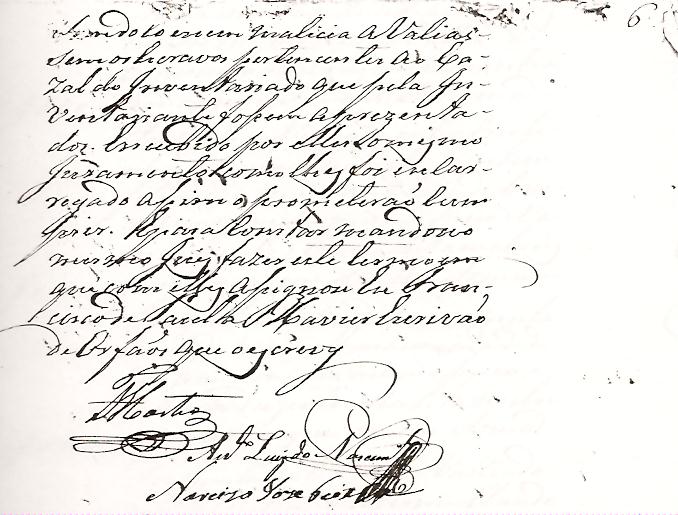 6
dolo e sem malicia a Valias-
sem os Escravos pertencentes ao Ca-
zal do Inventariado que pela In-
ventariante fossem aprezenta-
dos. E recebido por elles o mesmo
Juramento, como lhes foi encar-
regado assim o prometerão cum-
prir. E para constar mandou o
mesmo Juiz fazer este termo em
que com elles assignou Eu Fran-
cisco de Paula Xavier Escrivão
de Orfãos que o escrevy
Anto Luiz do Nascim
Narcizo Joze